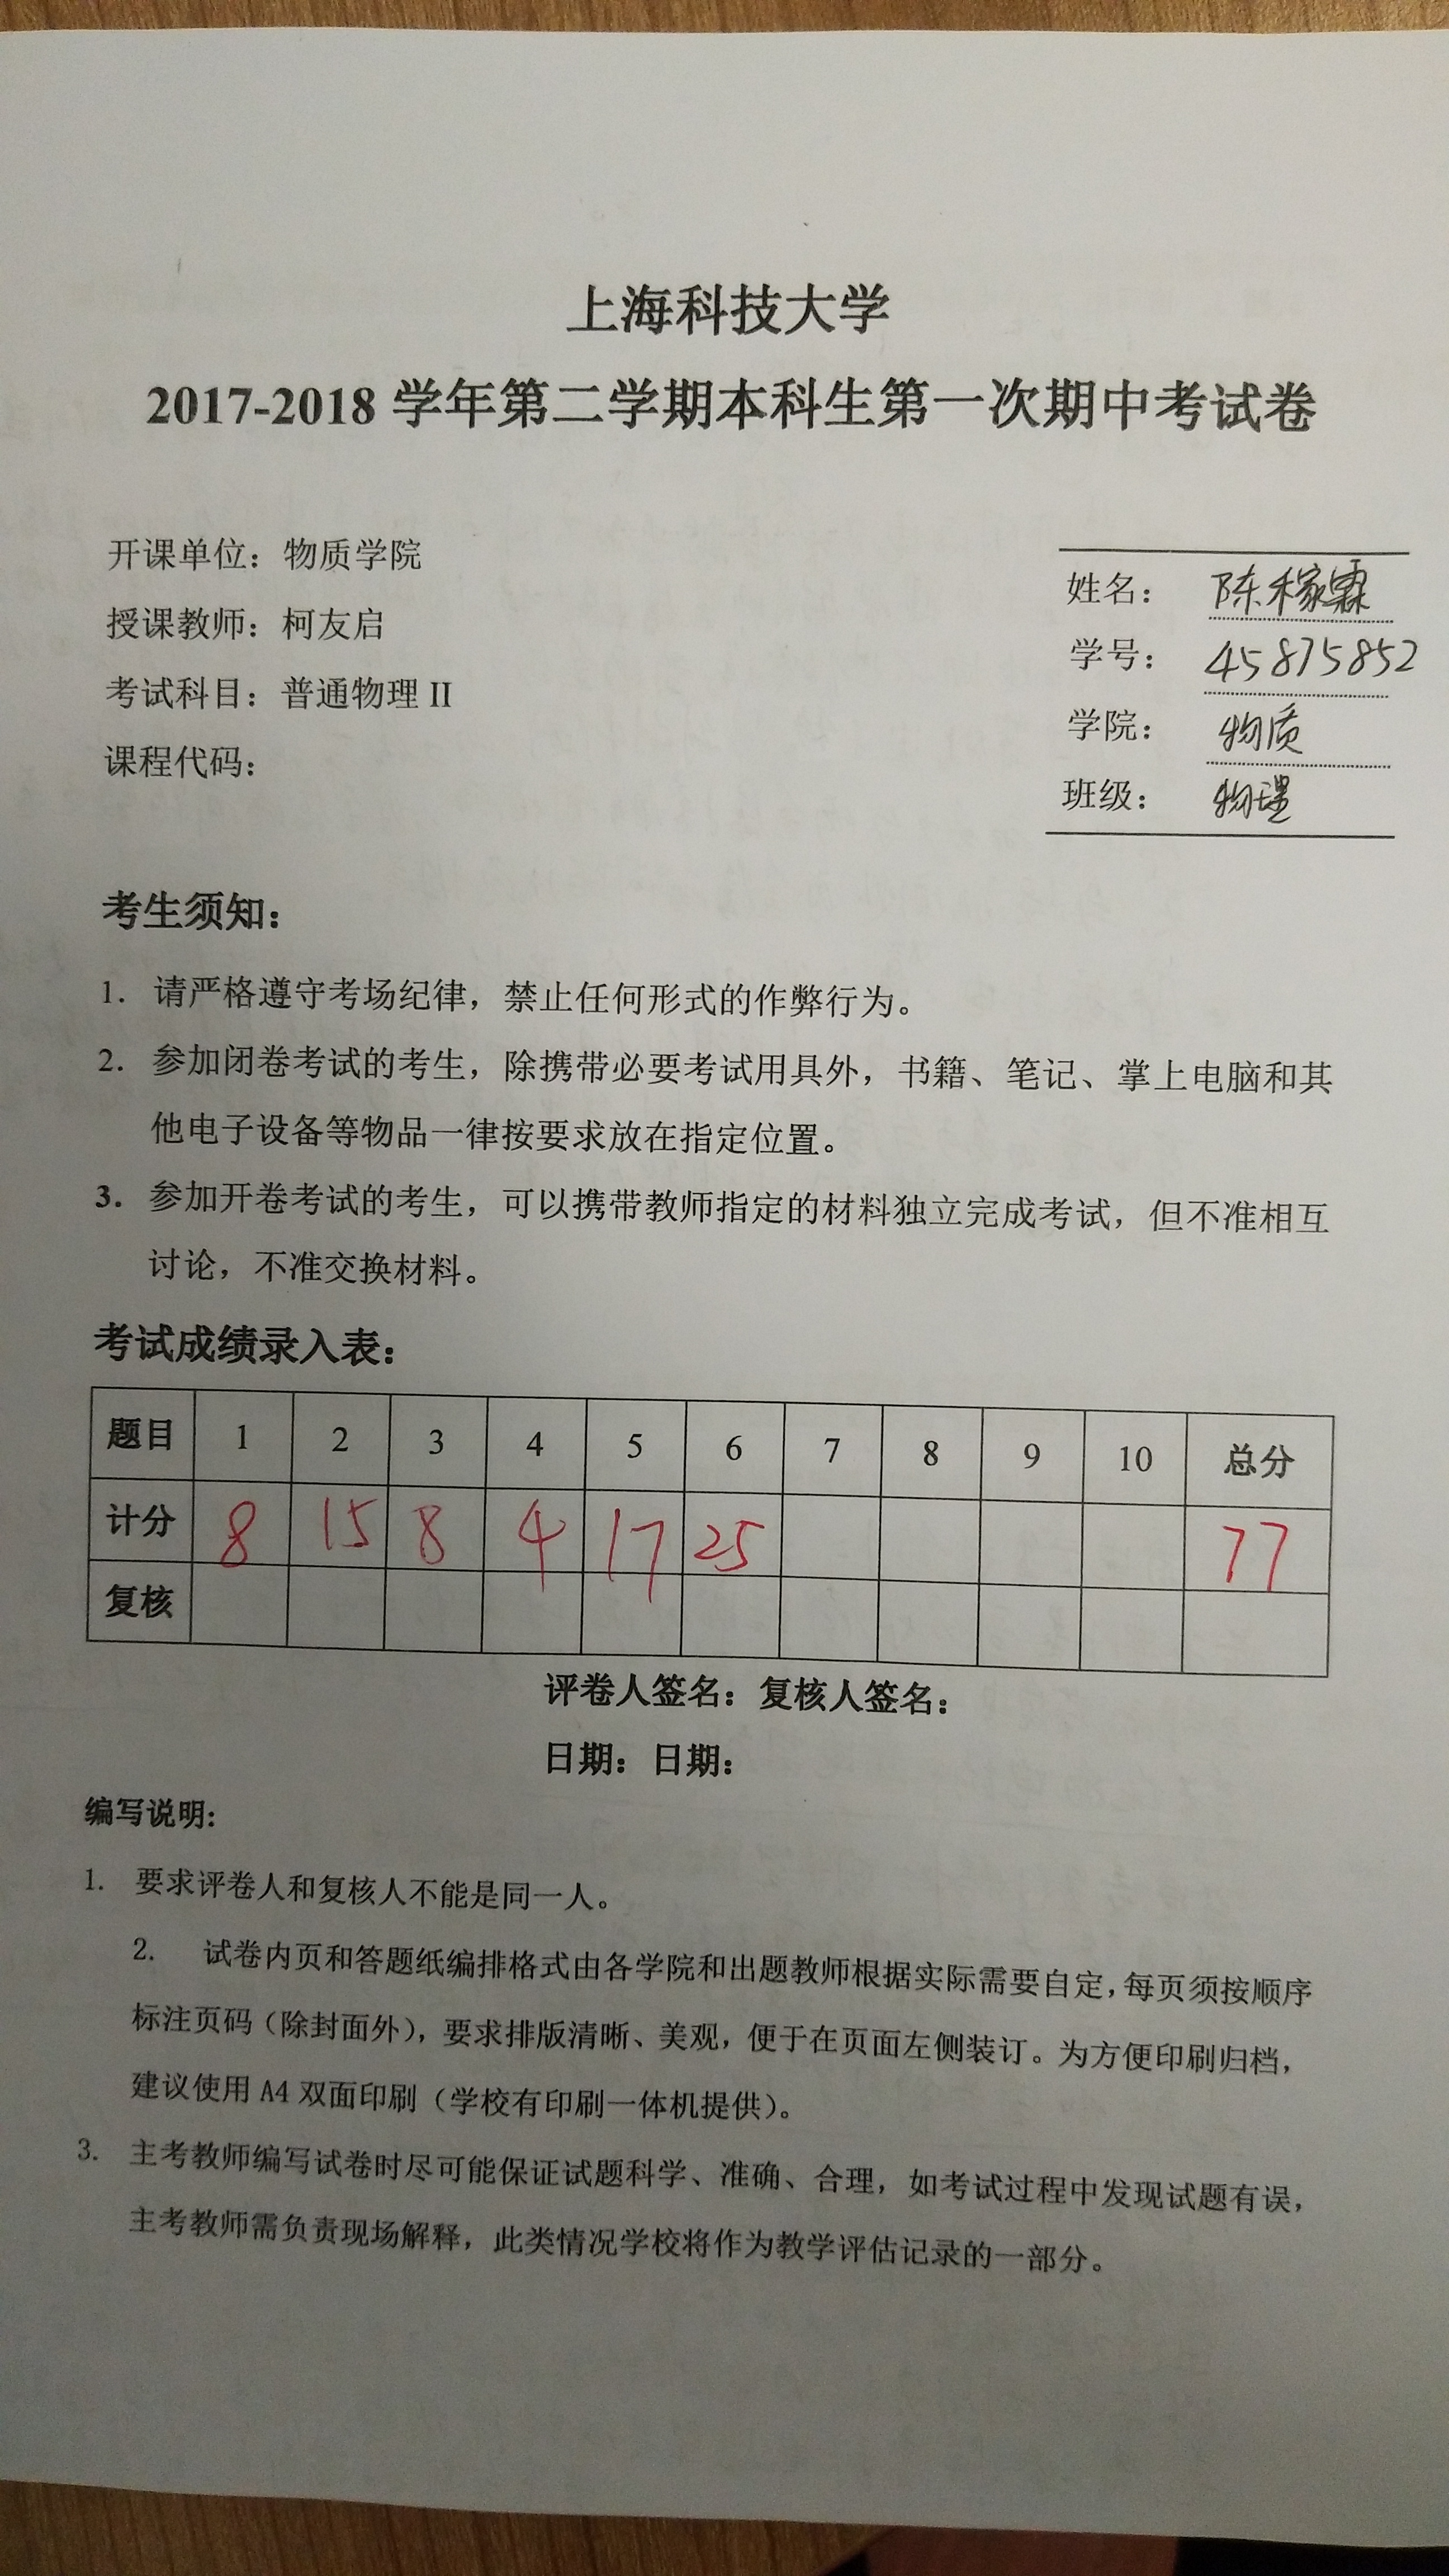 上海科技大学
2017-2018 学年第二学期本科生第一次期中考试卷
开课单位：物质学院
授课教师：柯友启
考试科目：普通物理 II
课程代码：
姓名：陈稼霖
学号：45875852
学院：物质
班级：物理
考生须知：
1. 请严格遵守考场纪律，禁止任何形式的作弊行为。
2. 参加闭卷考试的考生，除携带必要考试用具外，书籍、笔记、掌上电脑和其
他电子设备等物品一律按要求放在指定位置。
3. 参加开卷考试的考生，可以携带教师指定的材料独立完成考试，但不准相互
讨论，不准交换材料。
考试成绩录入表：
题目 1 2 3 4 5 6 7 8 9 10 总分
计分 8 15 8 4 17 25 77
复核
评卷人签名：复核人签名：
日期：日期：
编写说明：
1. 要求评卷人和复核人不能是同一人。
2. 试卷内页和答题纸编排格式由各学院和出题教师根据实际需要自定，每页须按顺序
标注页码（除封面外），要求排版清晰、美观，便于在页面左侧装订。为方便印刷归档，
建议使用 A4 双面印刷（学校有印刷一体机提供）。
3. 主考教师编写试卷时尽可能保证试题科学、准确、合理，如考试过程中发现试题有误，
主考教师需负责现场解释，此类情况学校将作为教学评估记录的一部分。